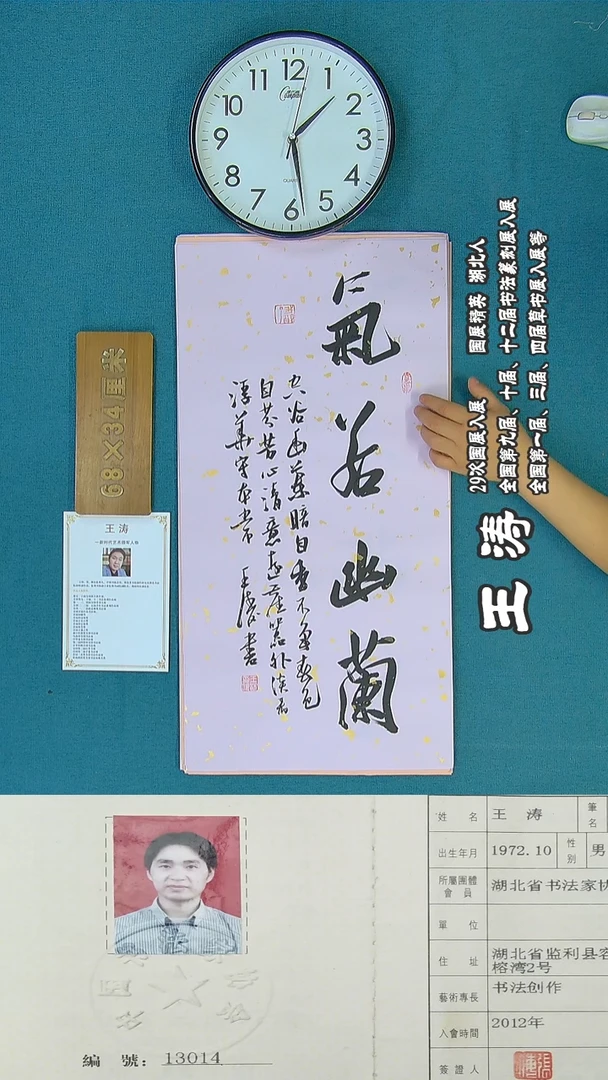 12
1
2
3
4
5
6
7
8
9
10
11
氣若幽蘭
空谷幽蘭暗自香不爭春色
自芬芳心清意遠塵囂外淡看
浮華守本常 王濤書
68×34厘米
王涛
29次国展入展 国展精英 湖北人
全国第九届、十届、十二届书法篆刻展入展
全国第一届、三届、四届草书展入展等
王涛
編 號：13014
姓 名 王 涛 筆名
出生年月 1972.10 性别 男
所屬團體會員 湖北省书法家协
單 位
住 址 湖北省监利县容
榕湾2号
藝術專長 书法创作
入會時間 2012年
簽證人